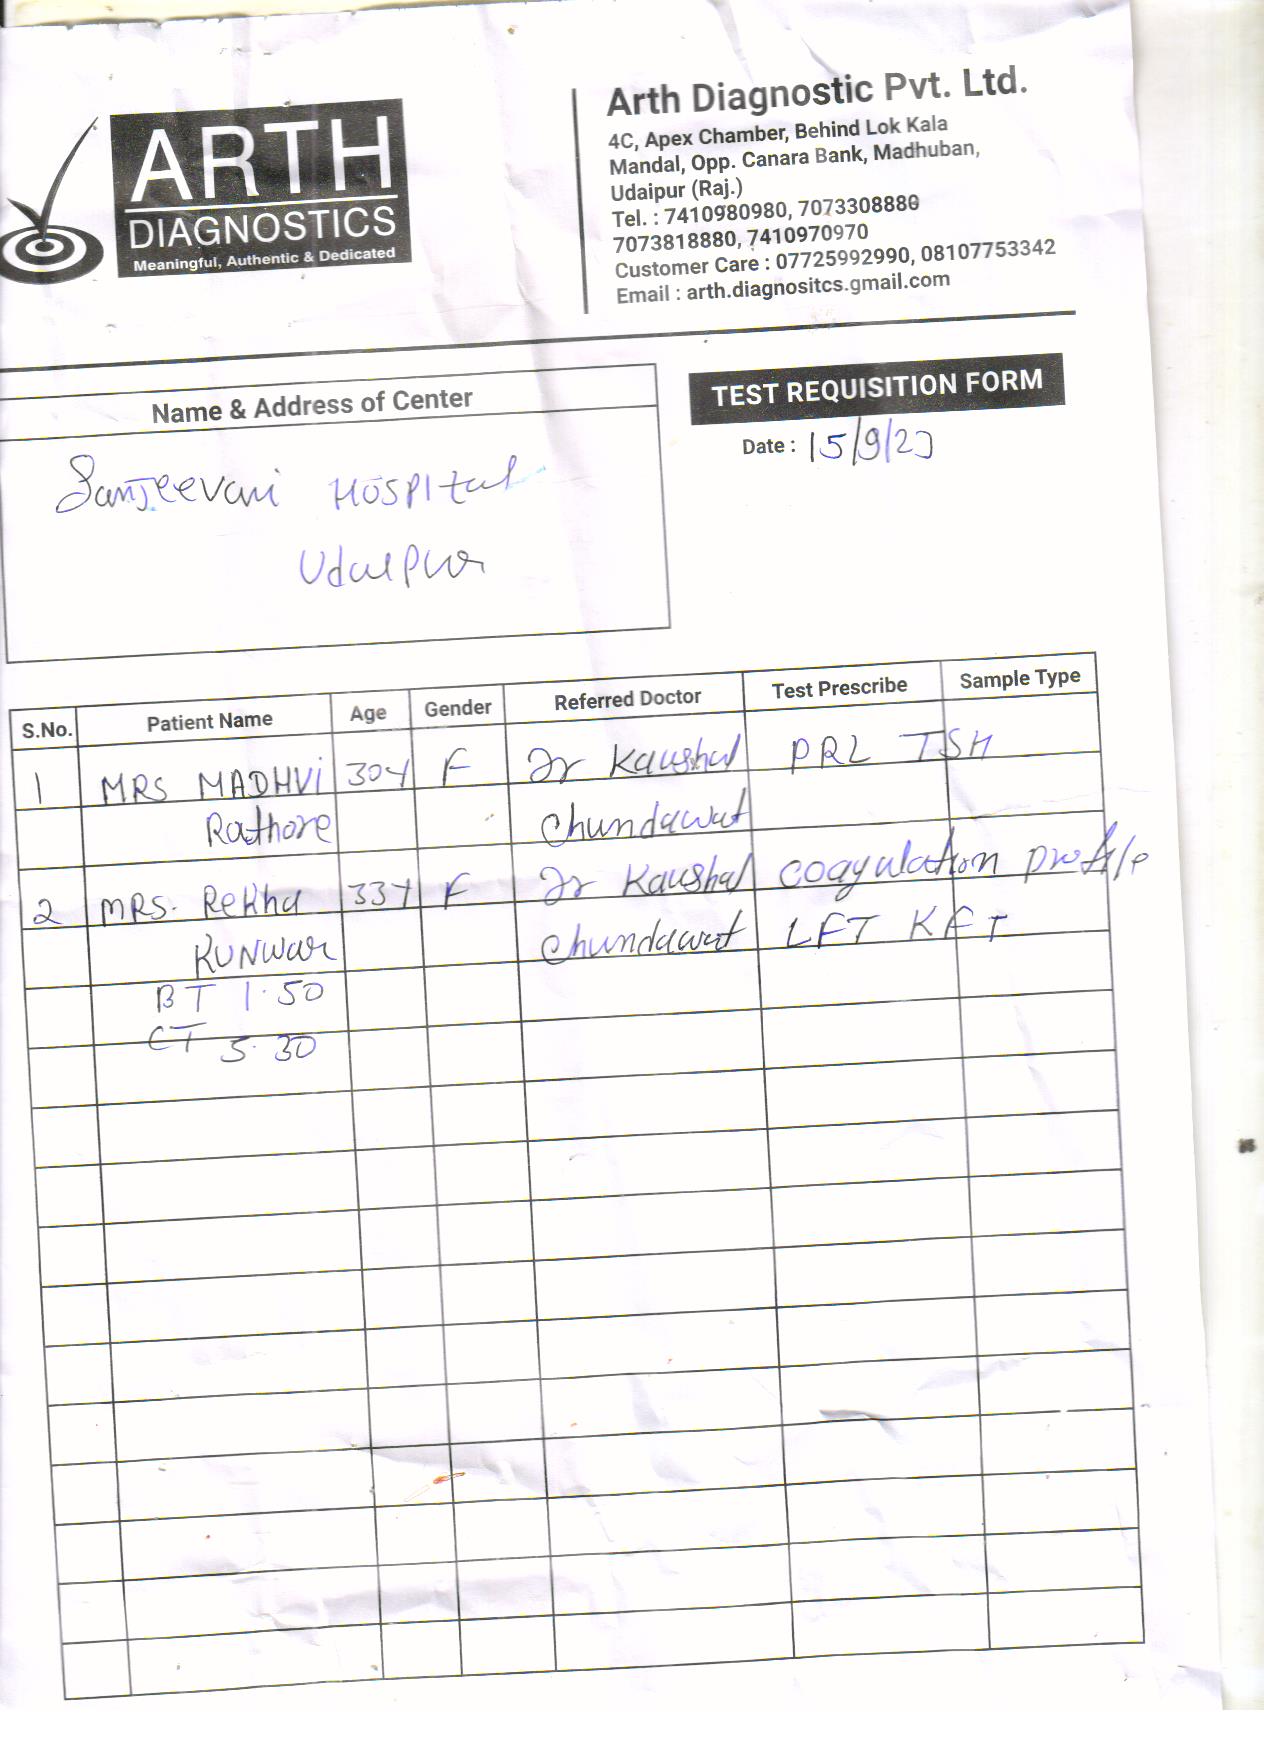 ARTH
DIAGNOSTICS
Meaningful, Authentic & Dedicated
Arth Diagnostic Pvt. Ltd.
4C, Apex Chamber, Behind Lok Kala
Mandal, Opp. Canara Bank, Madhuban,
Udaipur (Raj.)
Tel. : 7410980980, 7073308880
7073818880, 7410970970
Customer Care : 07725992990, 08107753342
Email : arth.diagnositcs.gmail.com
Name & Address of Center
Sanjeevani HOSPITal
Udaipur
TEST REQUISITION FORM
Date : 15/9/23
S.No. Patient Name Age Gender Referred Doctor Test Prescribe Sample Type
1 MRS MADHVi 30Y F Dr Kaushal PRL TSH
Rathore Chundawat
2 MRS. Rekha 33Y F Dr Kaushal coagulation profile
KUNWar Chundawat LFT KFT
BT 1.50
CT 5.30